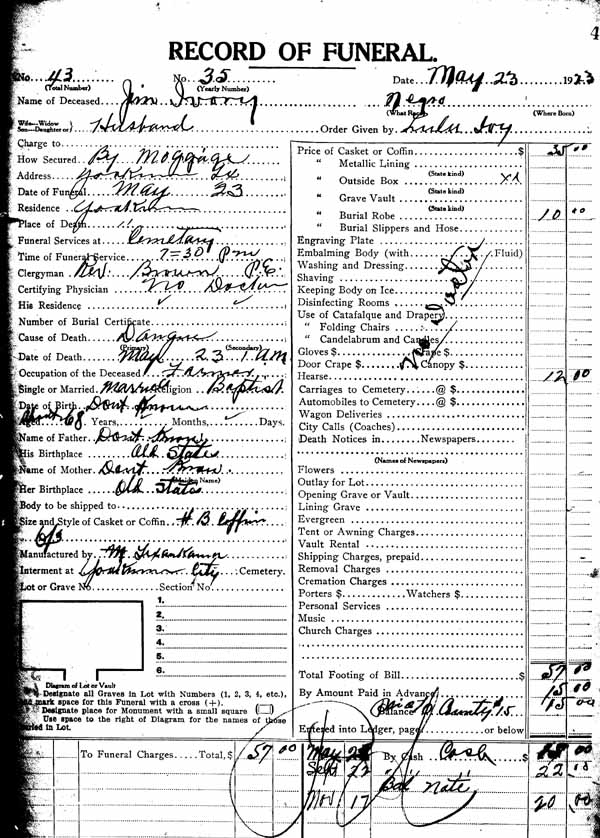 4
RECORD OF FUNERAL.
No. 43 No. 35 Date May 23 1923
(Total Number) (Yearly Number)
Name of Deceased Jim Ivory Negro
(What Race) (Where Born)
Wife—Widow
Son—Daughter of Husband Order Given by Lula Ivy
Charge to
How Secured By Moggage
Address Yoakum Tx
Date of Funeral May 23
Residence Yoakum
Place of Death " "
Funeral Services at Cemetary
Time of Funeral Service 7=30 Pm
Clergyman Rev. Brown P.E.
Certifying Physician No Doctor
His Residence
Number of Burial Certificate
Cause of Death Dangue
(Primary) (Secondary)
Date of Death May 23 1 AM
Occupation of the Deceased Farmer
Single or Married Married Religion Baptist
Date of Birth Dont Know
Aged About 68 Years Months Days.
Name of Father Dont Know
His Birthplace Old States
Name of Mother Dont Know
(Maiden Name)
Her Birthplace Old States
Body to be shipped to
Size and Style of Casket or Coffin H B Coffin
6/3
Manufactured by Texarkana
Interment at Yoakum City Cemetery.
Lot or Grave No. Section No.
1.
2.
3.
4.
5.
6.
Diagram of Lot or Vault
Designate all Graves in Lot with Numbers (1, 2, 3, 4, etc.),
and mark space for this Funeral with a cross (+).
Designate place for Monument with a small square
Use space to the right of Diagram for the names of those
buried in Lot.
Price of Casket or Coffin $ 35 00
" Metallic Lining
(State kind)
" Outside Box XX
(State kind)
" Grave Vault
(State kind)
" Burial Robe 10 00
" Burial Slippers and Hose
Engraving Plate
Embalming Body (with Fluid)
Washing and Dressing
Shaving
Keeping Body on Ice
Disinfecting Rooms
No Doctor
Use of Catafalque and Drapery
" Folding Chairs
" Candelabrum and Candles
Gloves $ Crape $
Door Crape $ Canopy $
Hearse 12 00
Carriages to Cemetery @ $
Automobiles to Cemetery @ $
Wagon Deliveries
City Calls (Coaches)
Death Notices in Newspapers
(Names of Newspapers)
Flowers
Outlay for Lot
Opening Grave or Vault
Lining Grave
Evergreen
Tent or Awning Charges
Vault Rental
Shipping Charges, prepaid
Removal Charges
Cremation Charges
Porters $ Watchers $
Personal Services
Music
Church Charges
Total Footing of Bill $ 57 00
By Amount Paid in Advance 15 00
Balance County $15. 15 00
Entered into Ledger, page or below
To Funeral Charges Total, $ 57 00 May By Cash Cash $ 00
Sept 22 " " 22
Bal Note
Nov 17 20 00